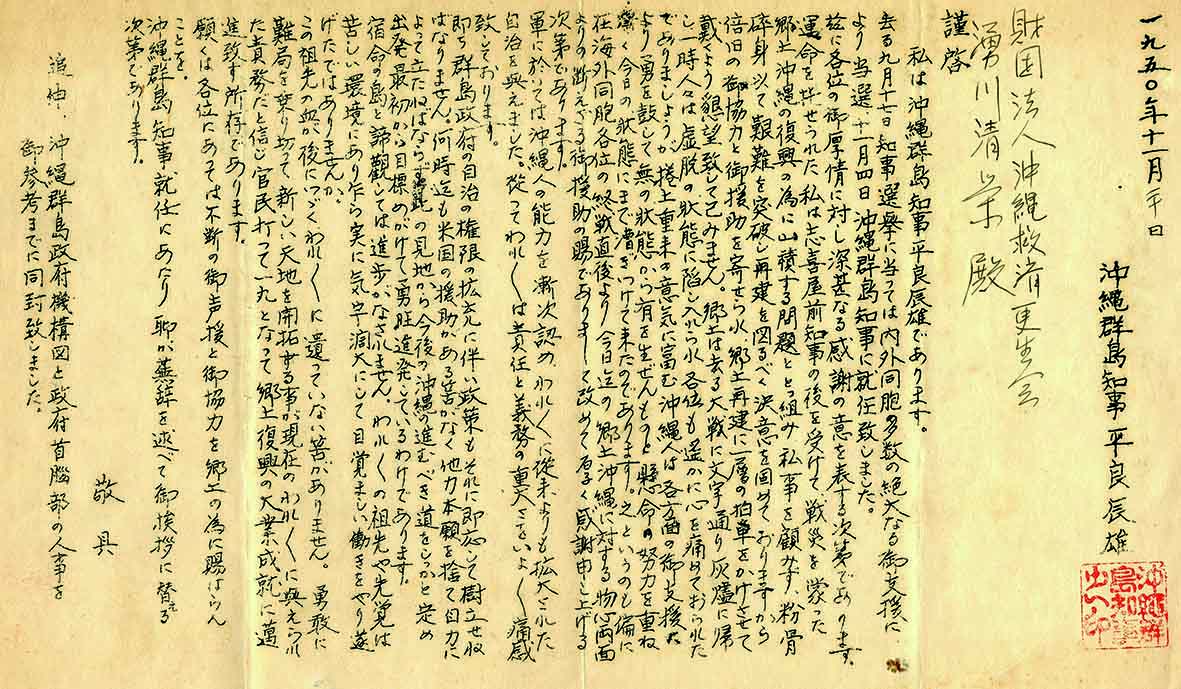 一九五〇年十一月二十日
沖縄群島知事 平良辰雄
沖縄群島知事之印
財団法人沖縄救済更生会
湧川清栄殿
謹啓
私は沖縄群島知事平良辰雄であります。
去る九月十七日知事選挙に当っては内外同胞多数の絶大なる御支援に
より当選、十一月四日沖縄群島知事に就任致しました。
茲に各位の御厚情に対し深甚なる感謝の意を表する次第であります。
運命を負わせられた私は志喜屋前知事の後を受けて、戦災を蒙った
郷土沖縄の復興の為に山積する問題ととっ組み、私事を顧みず、粉骨
砕身以て艱難を突破し再建を図るべく決意を固めておりますから
倍旧の御協力と御援助を寄せられ郷土再建に一層の拍車をかけさせて
戴くよう懇望致して已みません。郷土は去る大戦に文字通り灰燼に帰
し一時人々は虚脱の状態に陥し入られ、各位も遥かに心を痛めておられた
でありましょうが、捲土重来の意気に富む沖縄人は各方面の御支援に
より勇を鼓して無の状態から有を生ぜんものと懸命の努力を重ね
漸く今日の状態にまで漕ぎつけて来たのであります。之というのも偏に
在海外同胞各位の終戦直後より今日迄の郷土沖縄に対する物心両面
よりの断えざる御援助の賜でありまして改めて厚く感謝申し上げる
次第であります。
軍に於いては沖縄人の能力を漸次認め、われ〱に従来よりも拡大された
自治を與えました。従ってわれ〱は責任と義務の重大さをいよ〱痛感
致しております。
即ち群島政府の自治の権限の拡充に伴い政策もそれに即応して樹立せね
ばなりません。何時迄も米国の援助がある筈がなく他力本願を捨てて自力に
よって立たねばならず の見地から今後の沖縄の進むべき道をしっかと定め
出発最初から目標めがけて勇往進発しているわけであります。
宿命の島と諦観しては進歩がなされません。われ〱の祖先や先覚は
苦しい環境にあり乍ら実に気宇濶大にして目覚ましい働きをやり遂
げたではありませんか。
この祖先の血が後につづくわれ〱に還っていない筈がありません。勇敢に
難局を乗り切って新しい天地を開拓する事が現在のわれ〱に與えられ
た責務だと信じ官民打って一丸となって郷土復興の大業成就に邁
進致す所存であります。
願くは各位にあっては不断の御声援と御協力を郷土の為に賜はらん
ことを。
沖縄群島知事就任にあたり聊か蕪辞を述べて御挨拶に替える
次第であります。
敬具
追伸、沖縄群島政府機構図と政府首脳部の人事を
御参考までに同封致しました。